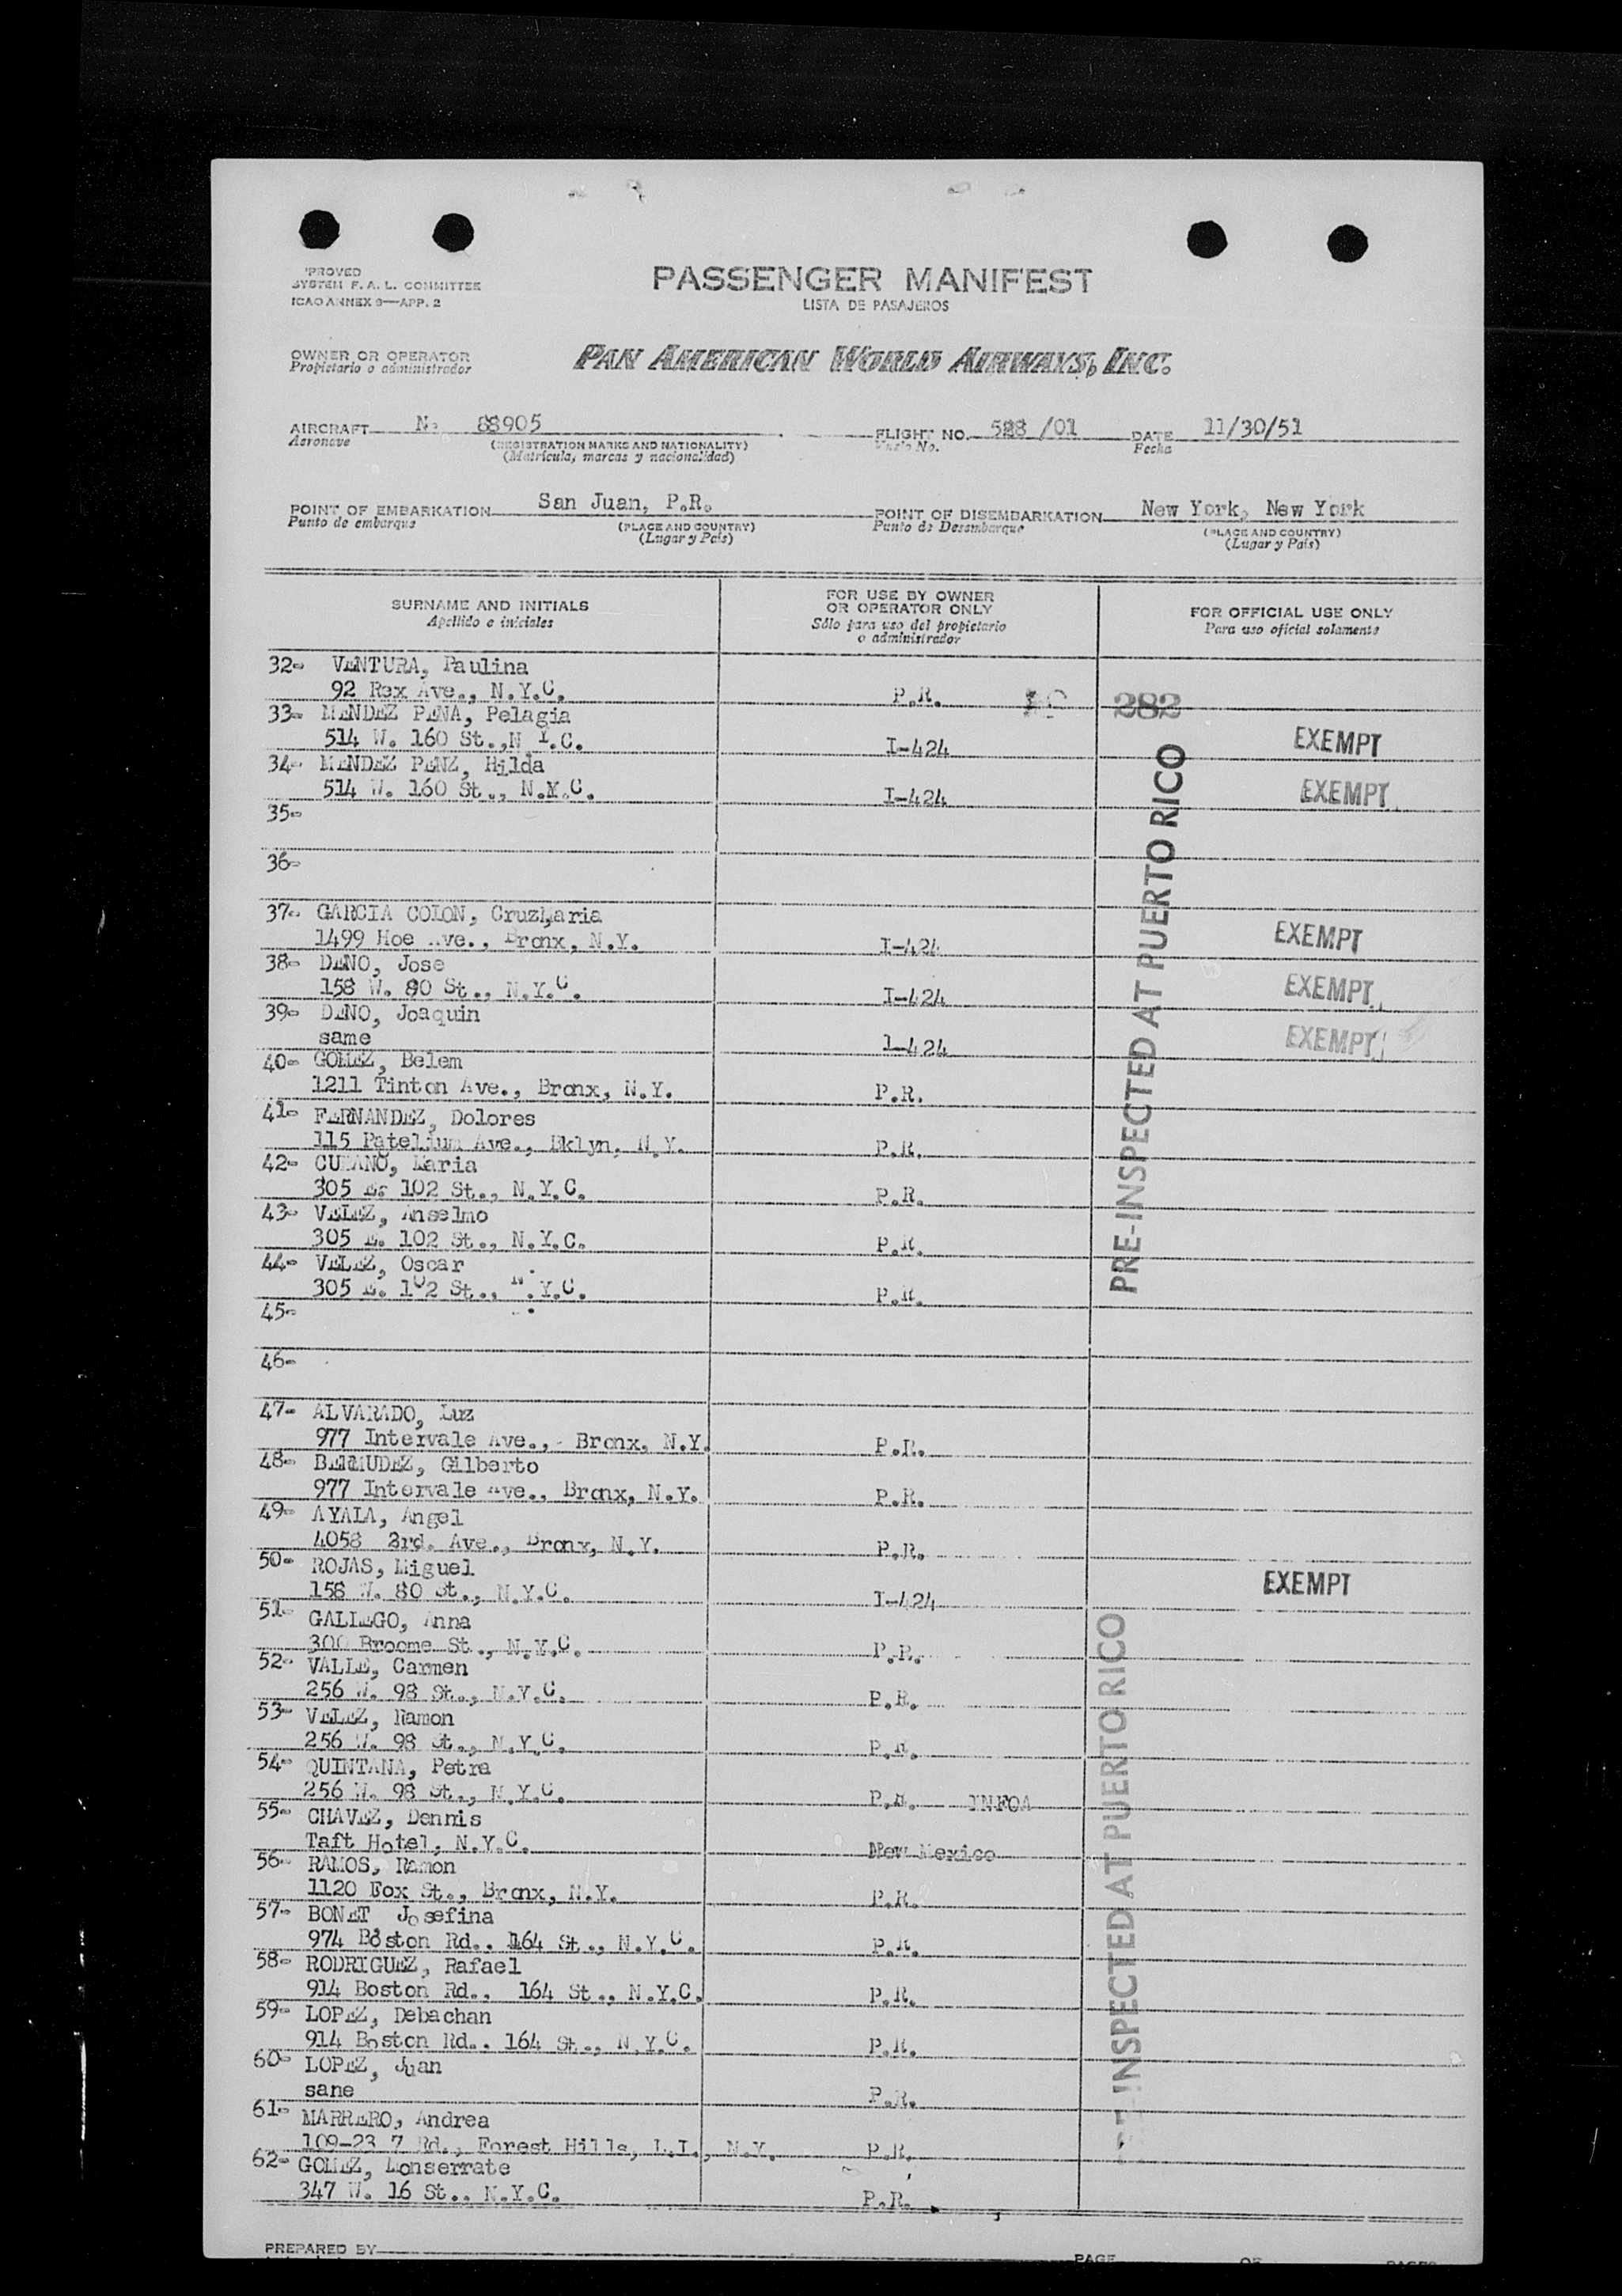 PROVED
SYSTEM F. A. L. COMMITTEE
ICAO ANNEX 9—APP. 2
PASSENGER MANIFEST
LISTA DE PASAJEROS
OWNER OR OPERATOR
Propietario o administrador
PAN AMERICAN WORLD AIRWAYS, INC.
AIRCRAFT N. 88905 FLIGHT NO. 528 /01 DATE 11/30/51
Aeronave (REGISTRATION MARKS AND NATIONALITY) Vuelo No. Fecha
(Matrícula, marcas y nacionalidad)
POINT OF EMBARKATION San Juan, P.R. POINT OF DISEMBARKATION New York, New York
Punto de embarque (PLACE AND COUNTRY) Punto de Desembarque (PLACE AND COUNTRY)
(Lugar y País) (Lugar y País)
SURNAME AND INITIALS
Apellido e iniciales
FOR USE BY OWNER
OR OPERATOR ONLY
Sólo para uso del propietario
o administrador
FOR OFFICIAL USE ONLY
Para uso oficial solamente
32- VENTURA, Paulina
92 Rex Ave., N.Y.C. P.R. 282
33- MENDEZ PENA, Pelagia
514 W. 160 St.,N.Y.C. I-424 EXEMPT
34- MENDEZ PENZ, Hilda
514 W. 160 St., N.Y.C. I-424 EXEMPT
35-
36-
37- GARCIA COLON, CruzMaria
1499 Hoe Ave., Bronx, N.Y. I-424 EXEMPT
38- DENO, Jose
158 W. 80 St., N.Y.C. I-424 EXEMPT
39- DENO, Joaquin
same I-424 EXEMPT
40- GOMEZ, Belem
1211 Tinton Ave., Bronx, N.Y. P.R.
41- FERNANDEZ, Dolores
115 Patelium Ave., Bklyn, N.Y. P.R.
42- CUMANO, Maria
305 E. 102 St., N.Y.C. P.R.
43- VELEZ, Anselmo
305 E. 102 St., N.Y.C. P.R.
44- VELEZ, Oscar
305 E. 102 St., N.Y.C. P.R.
PRE-INSPECTED AT PUERTO RICO
45-
46-
47- ALVARADO, Luz
977 Intervale Ave., Bronx, N.Y. P.R.
48- BERMUDEZ, Gilberto
977 Intervale Ave., Bronx, N.Y. P.R.
49- AYALA, Angel
4058 3rd. Ave., Bronx, N.Y. P.R.
50- ROJAS, Miguel
158 W. 80 St., N.Y.C. I-424 EXEMPT
51- GALLEGO, Anna
300 Broome St., N.Y.C. P.R.
52- VALLE, Carmen
256 W. 98 St., N.Y.C. P.R.
53- VELEZ, Ramon
256 W. 98 St., N.Y.C. P.R.
54- QUINTANA, Petra
256 W. 98 St., N.Y.C. P.R. INFOA
55- CHAVEZ, Dennis
Taft Hotel, N.Y.C. New Mexico
56- RAMOS, Ramon
1120 Fox St., Bronx, N.Y. P.R.
57- BONET Josefina
974 Boston Rd.. 164 St., N.Y.C. P.R.
58- RODRIGUEZ, Rafael
914 Boston Rd.. 164 St., N.Y.C. P.R.
59- LOPEZ, Debachan
914 Boston Rd.. 164 St., N.Y.C. P.R.
60- LOPEZ, Juan
sane P.R.
61- MARRERO, Andrea
109-23 7 Rd., Forest Hills, L.I., N.Y. P.R.
62- GOMEZ, Monserrate
347 W. 16 St.. N.Y.C. P.R.
PRE-INSPECTED AT PUERTO RICO
PREPARED BY PAGE OF PAGES